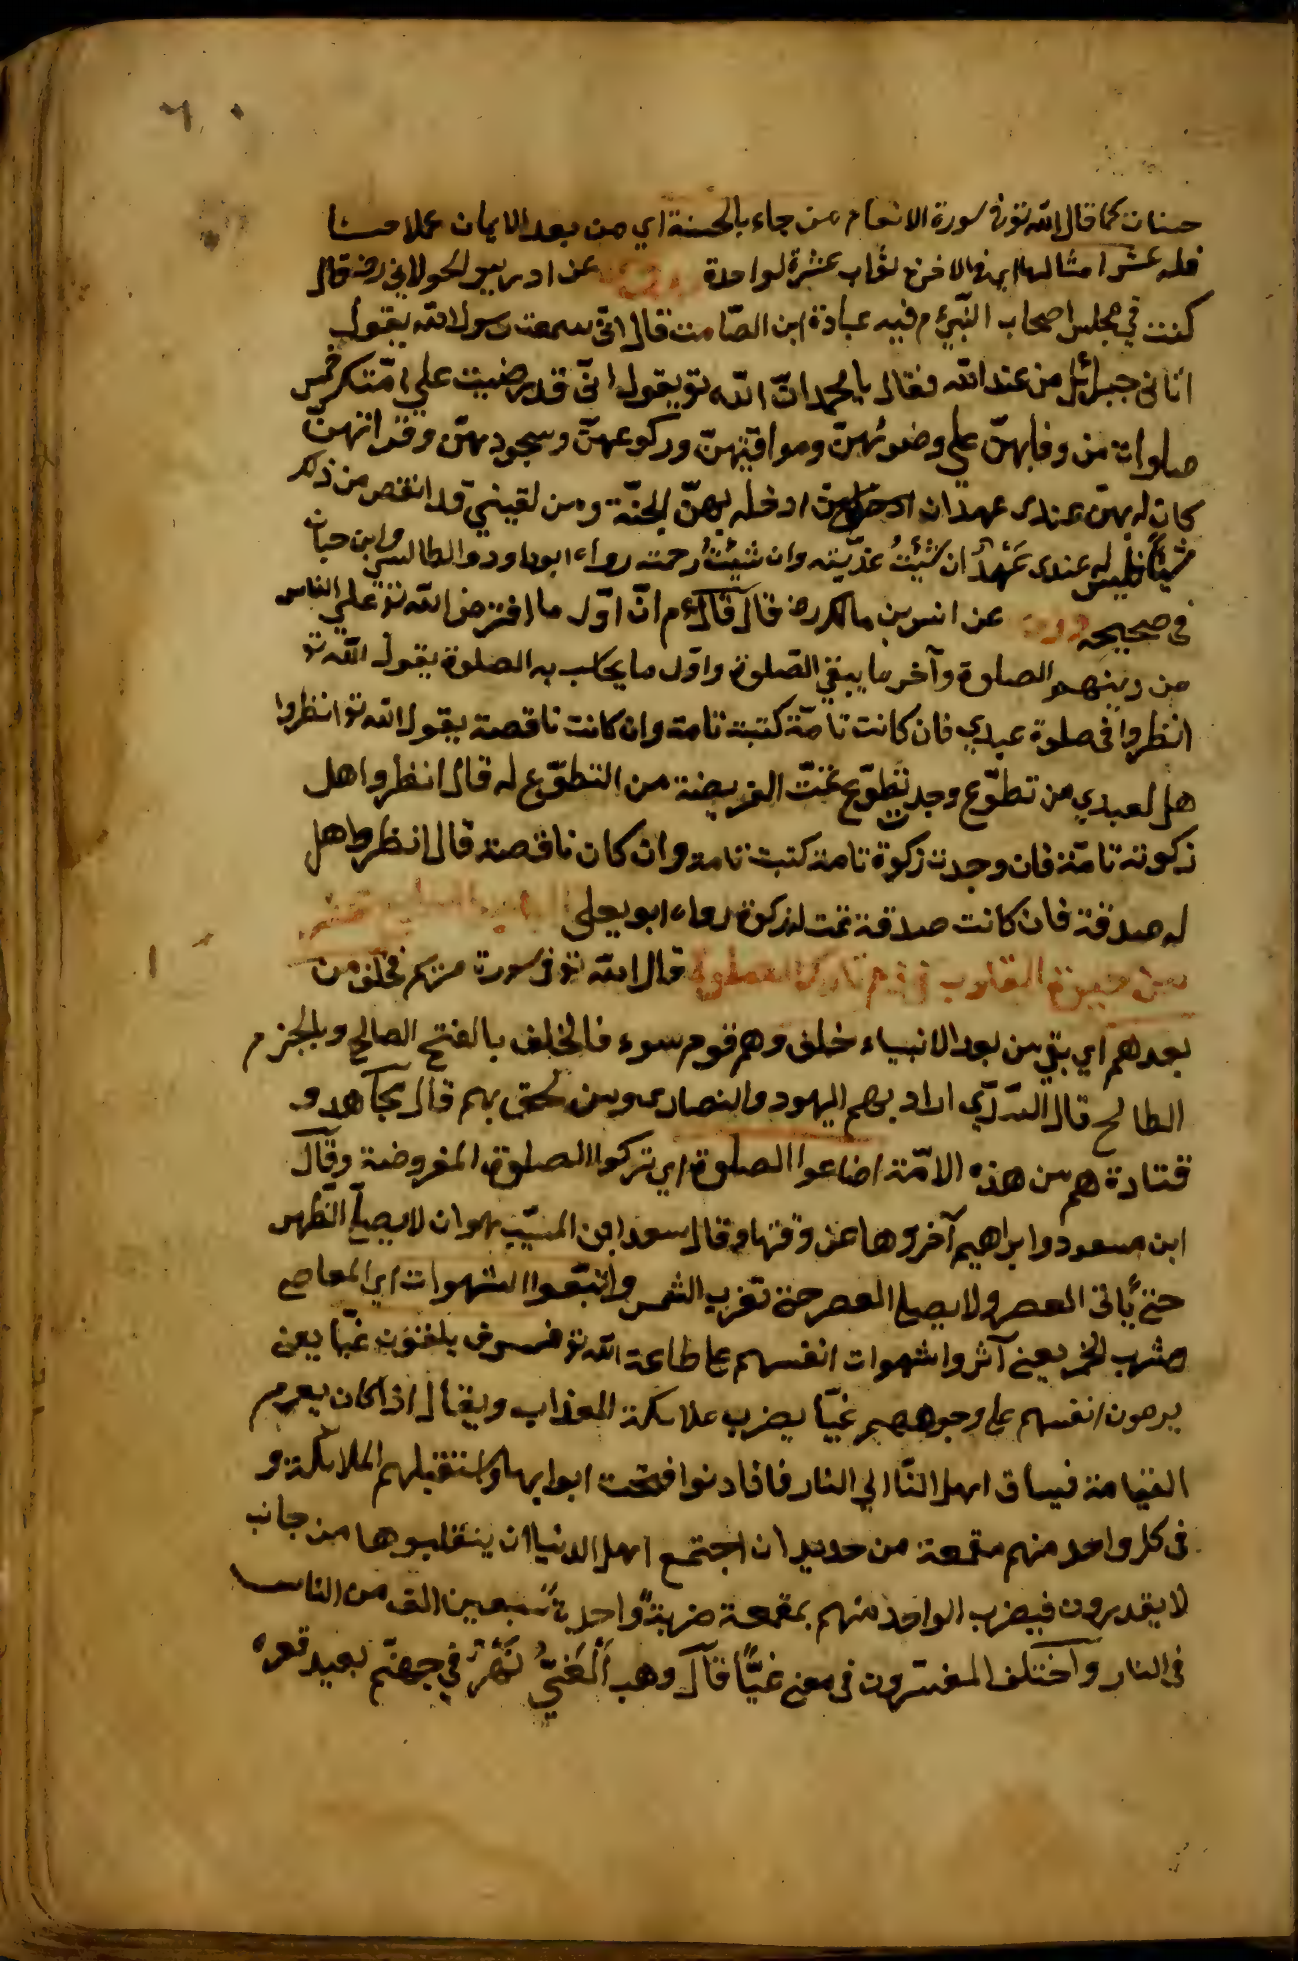 ٦٠
حسنات كما قال الله تع فى سورة الانعام من جاء بالحسنة اي من بعد الايمان عملا حسنا
فله عشر امثالها اي فى الاخرة ثواب عشرة لواحدة عن ادريس الخولاني رضه قال
كنت في مجلس اصحاب النّبيّ م فيه عبادة ابن الصّامت قال انّي سمعت رسول الله يقول
اتانى جبرائل من عند الله فقال يا محمد انّ الله تع يقول انّي قد فرضيت علي امّتكر خمس
صلوات من وفا بهنّ علي وضوئهنّ ومواقيتهنّ وركوعهنّ وسجودهنّ وقراتهن
كان له بهنّ عندى عهد ان ادخله بهنّ الجنّة ومن لقينيّ قد انقص من ذلك
شيئا فليس له عندى عَهْدٌ ان شئتُ عذّبته وان شئتُ رحمته رواه ابو داود والطالسي وابن حبان
فى صحيحه وروى عن انس بن مالك رضه قال قال م انّ اوّل ما افترض الله تع علي الناس
من دينهم الصلوة وآخر ما يبقي الصّلوة واوّل ما يحاسب به الصلوة يقول الله تع
انظروا فى صلوة عبدي فان كانت تامّة كتبت تامة وان كانت ناقصة يقول الله تع انظروا
هل لعبدي من تطوّع وجد تطوّع تمّت الفريضة من التطوّع له قال انظروا هل
زكوته تامّة فان وجدت زكوة تامة كتبت تامة وان كان ناقصة قال انظروا هل
له صدقة فان كانت صدقة تمت له زكوة رواه ابو يعلى
من حيوة القلوب فى ذم تارك الصلوة قال الله تع فى سورة مريم فخلف من
بعدهم اي بقي من بعد الانبياء خلف وهم قوم سوء فالخلف بالفتح الصالح وبالجزم
الطالح قال السّدّي اراد بهم اليهود والنصارى ومن لحق بهم قال مجاهد و
قتادة هم من هذه الامّة اضاعوا الصلوة اي تركوا الصلوة المفروضة وقال
ابن مسعود وابراهيم آخروها عن وقتها وقال سعد ابن المسيّب هو ان لا يصلّي الظهر
حتى يأتى العصر ولا يصلي العصر حتى تغرب الشمس واتّبعوا الشهوات اي المعاصى
شرب الخمر يعنى آثروا شهوات انفسهم على طاعة الله تع فسوف يلقون غيّا يعنى
يرمون انفسهم على وجوههم غيّا يضرب ملائكة العذاب ويقال اذا كان يوم
القيامة فيساق اهل النّا الي النار فاذا دنوا فتحت ابوابها واستقبلهم الملائكة و
فى كل واحد منهم مقمعة من حديد ان اجتمع اهل الدنيا ان ينقلبوها من جانب
لا يقدرون فيضرب الواحد منهم بمقمعة ضربةً واحدةً سبعين الف من الناس
فى النار واختلف المفسّرون فى معنى غيّاً قال وهب اَلْغَيُّ نَهْرٌ في جهنّم بعيد قعره